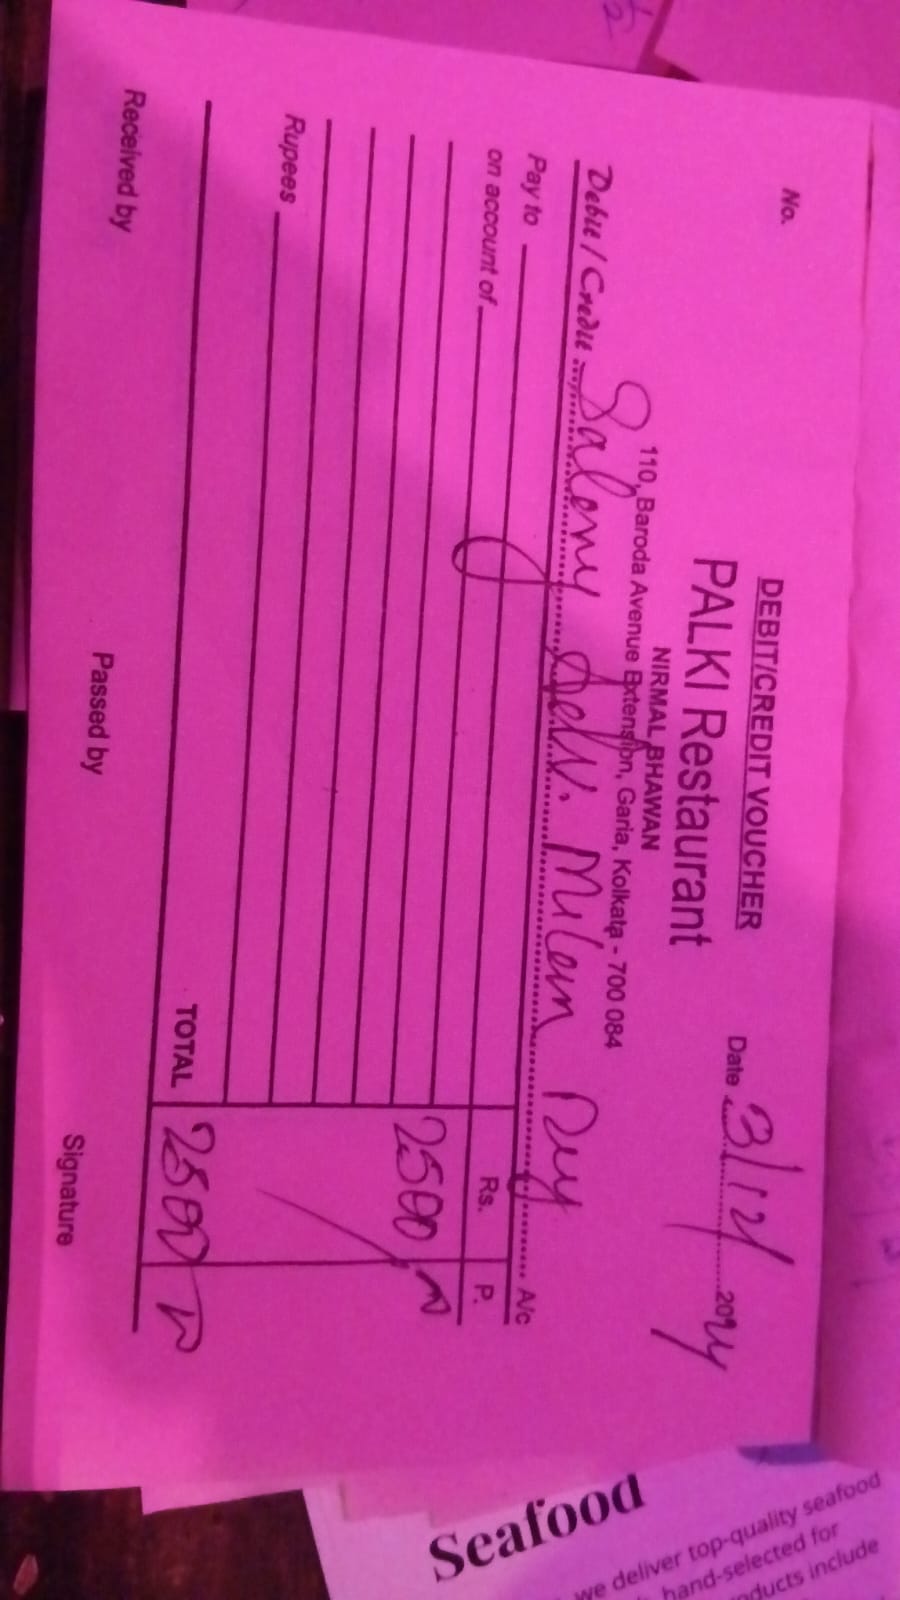 DEBIT/CREDIT VOUCHER
PALKI Restaurant
NIRMAL BHAWAN
110, Baroda Avenue Extension, Garia, Kolkata - 700 084
No.
Date 3/12/ 2024
Debit / Credit Salary Adv. Milan Dey A/c
Pay to
on account of
Rs. P.
2500
Rupees
TOTAL 2500
Received by Passed by Signature
Seafood
we deliver top-quality seafood
hand-selected for
include